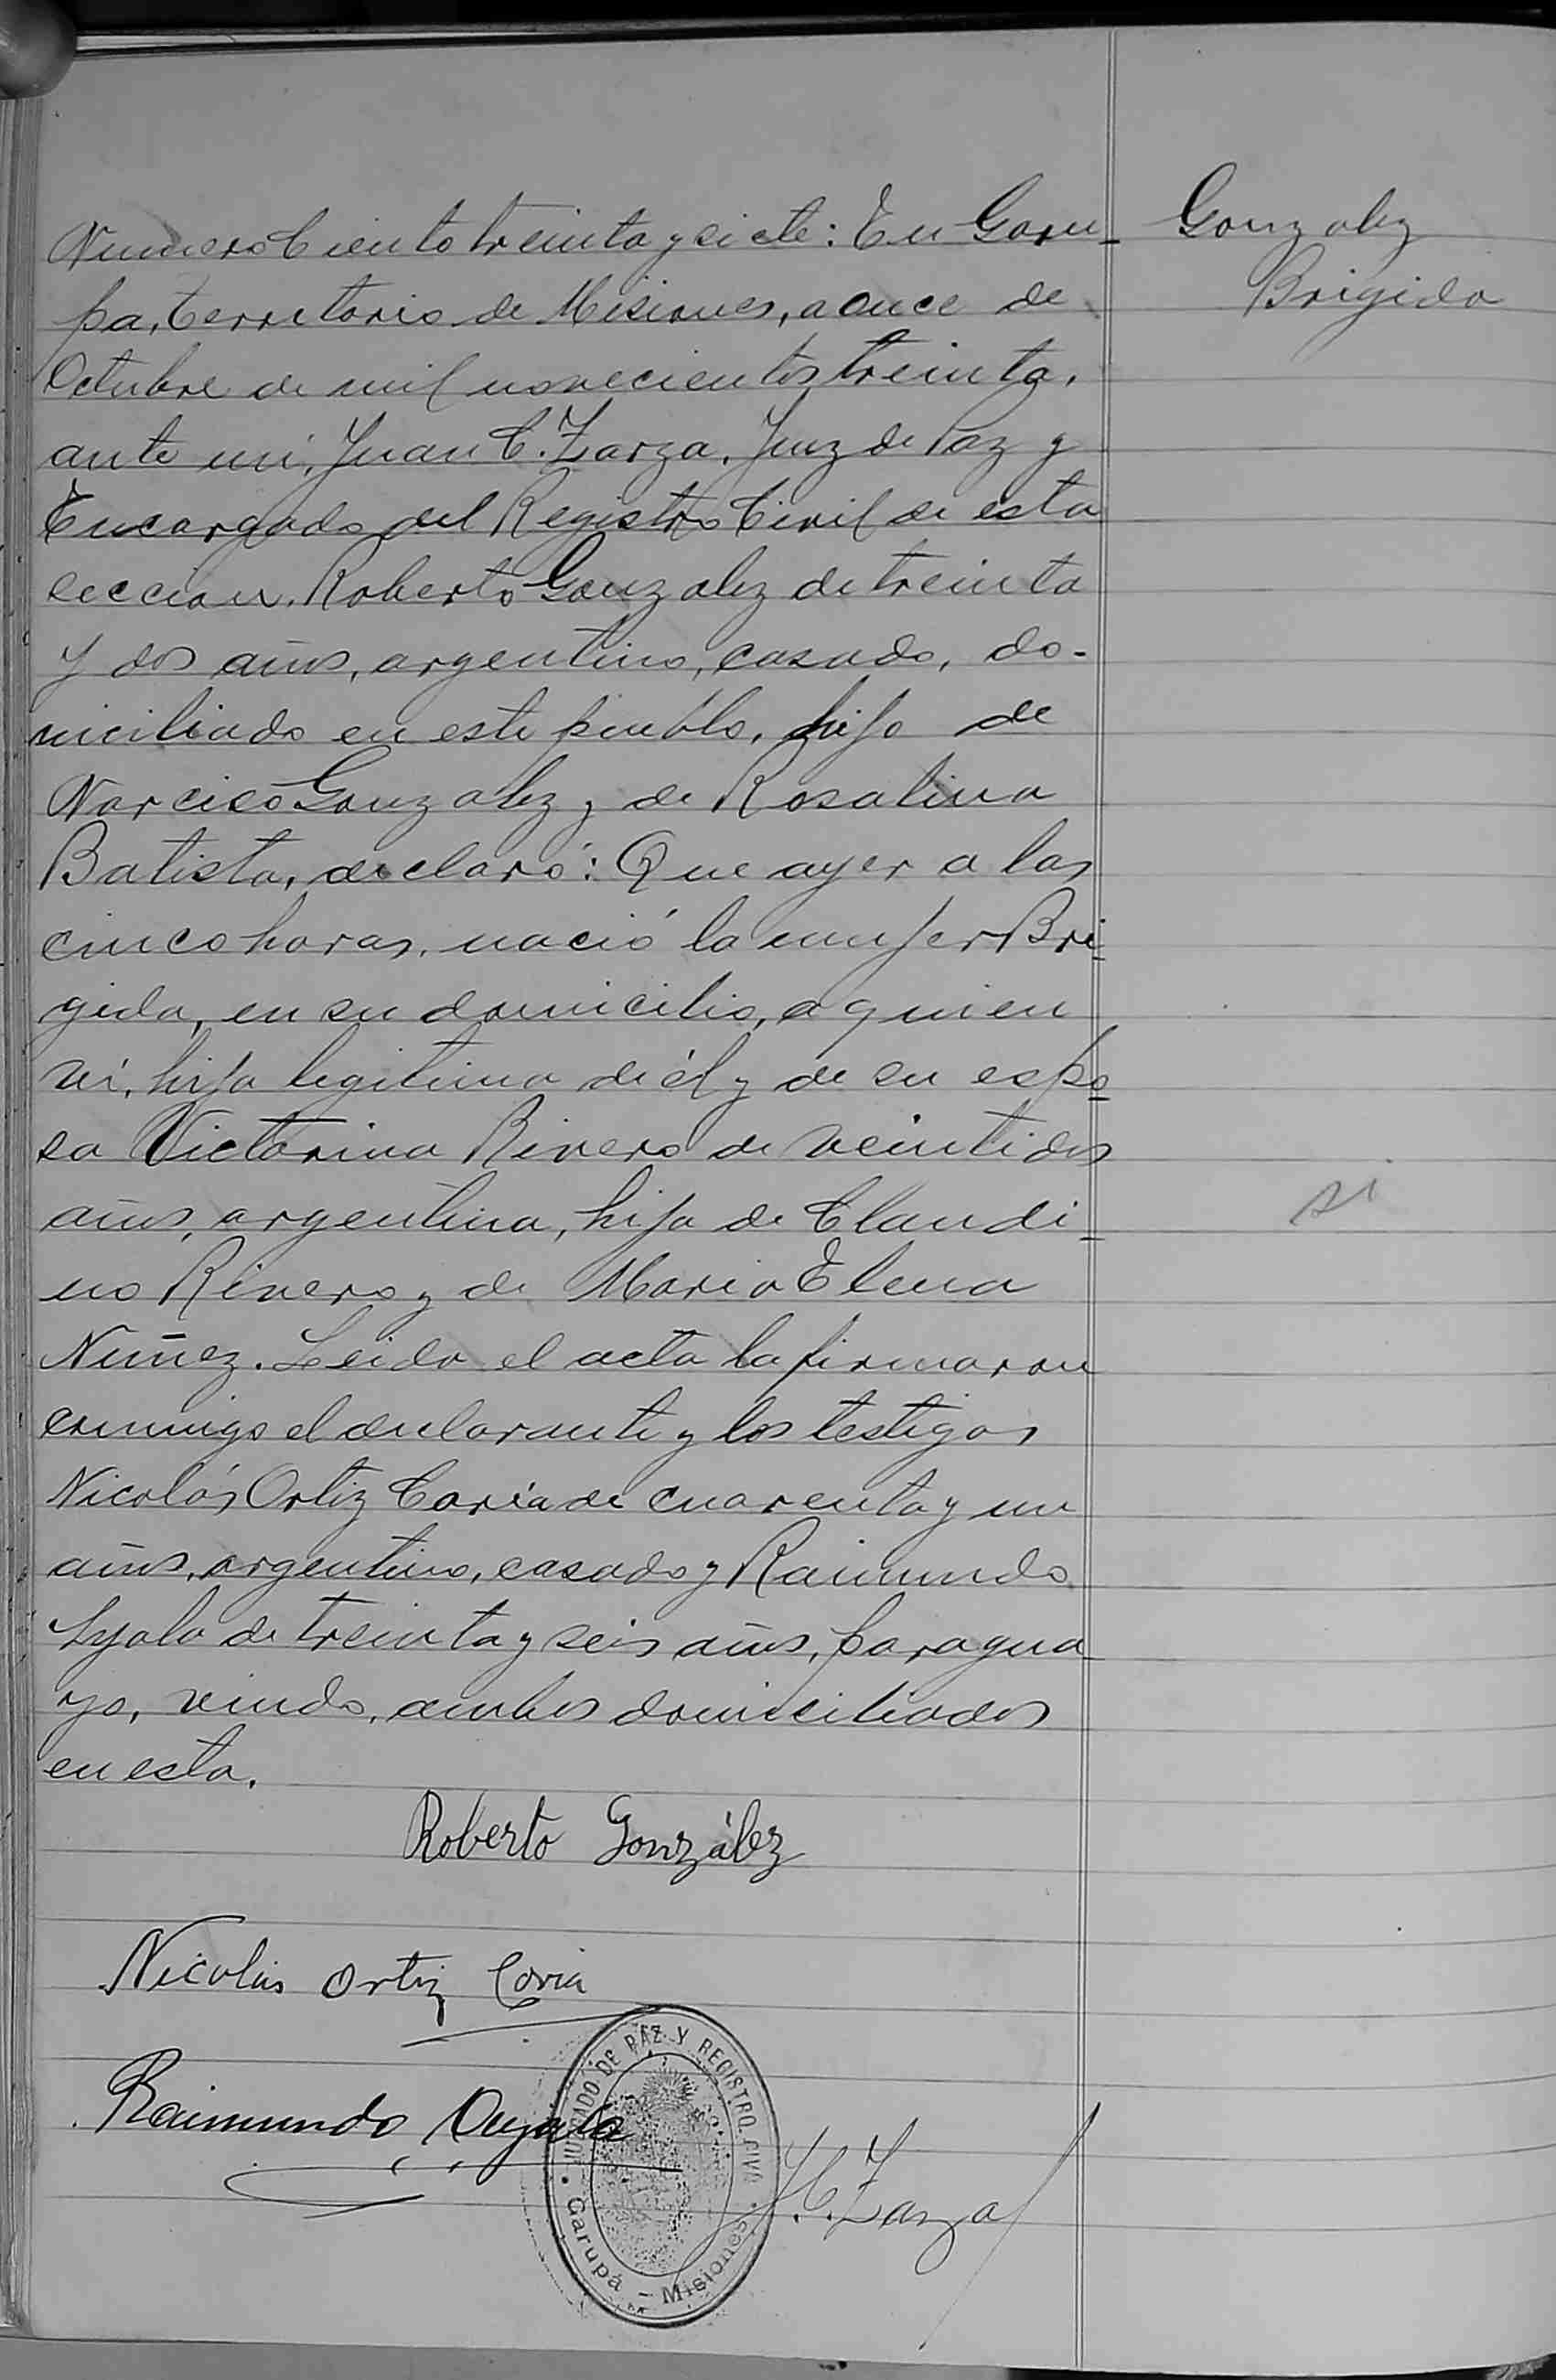 Gonzalez
Brigida
Numero Ciento treinta y siete: En Garu-
pa, Territorio de Misiones, a once de
Octubre de mil novecientos treinta,
ante mí, Juan C. Zarza, Juez de Paz y
Encargado del Registro Civil de esta
seccion, Roberto Gonzalez de treinta
y dos años, argentino, casado, do-
miciliado en este pueblo, hijo de
Narciso Gonzalez y de Rosalina
Batista, declaró: Que ayer a las
cinco horas, nació la mujer Bri-
gida, en su domicilio, a quien
ví, hija legitima de él y de su espo-
sa Victorina Rivero de veintidos
años, argentina, hija de Claudi-
no Rivero y de Maria Elena
Nuñez. Leida el acta la firmaron
conmigo el declarante y los testigos
Nicolás Ortiz Coria de cuarenta y un
años, argentino, casado y Raimundo
de treinta y seis años, paragua
yo, viudo, ambos domiciliados
en esta.
Roberto González
Nicolás Ortiz Coria
Raimundo
J.C. Zarza
JUZGADO DE PAZ Y REGISTRO CIVIL
Garupá - Misiones